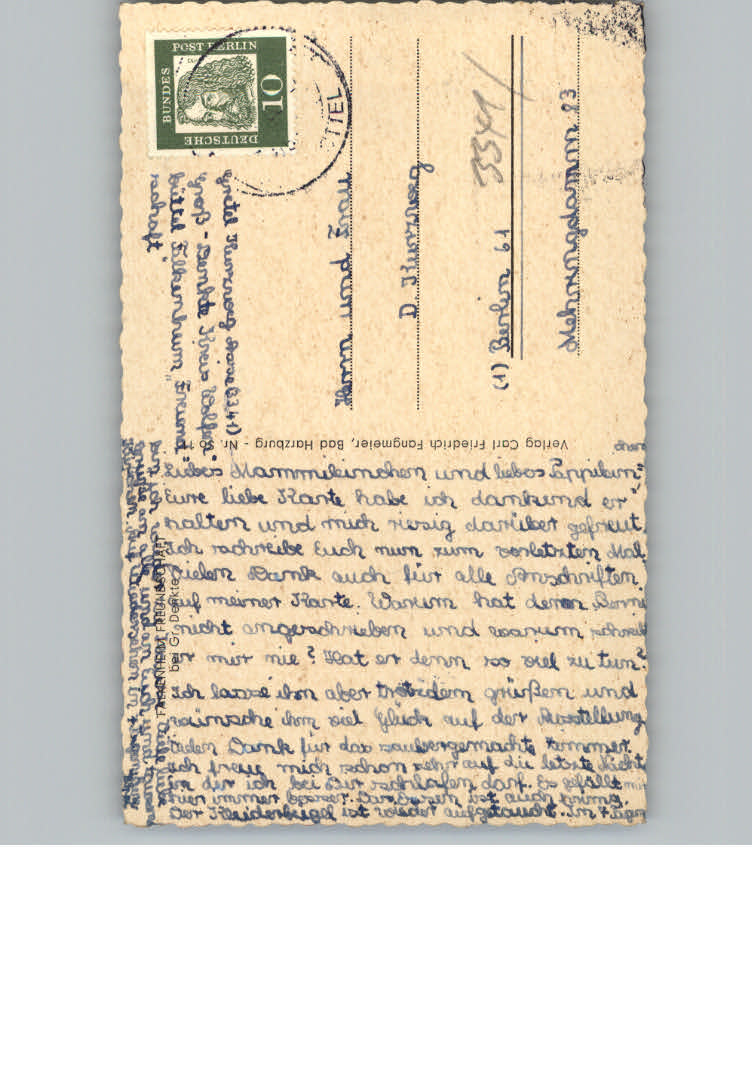 DEUTSCHE
BUNDES
POST BERLIN
10
TTEL
Gretel Kurzweg
Groß-Denkte Kreis Wolfen-
büttel Falkenheim "Freund-
schaft"
(3341)
Herrn und Frau
D. Kurzweg
3341/
(1) Berlin 61
Mehringdamm 93
Verlag Carl Friedrich Fangmeier, Bad Harzburg - Nr.
FALKENHEIM FREUNDSCHAFT
bei Gr. Denkte
Liebes Mammileinchen und liebes Pappilein"
Eure liebe Karte habe ich dankend er-
halten und mich riesig darüber gefreut.
Ich schreibe Euch nun zum vorletzten Mal
Vielen Dank auch für alle Anschriften
auf meiner Karte. Warum hat denn Berni
nicht angeschrieben und warum schreibt
er mir nie? Hat er denn so viel zu tun?
Ich lasse ihn aber trotzdem grüßen und
wünsche ihm viel Glück auf der Ausstellung
Vielen Dank für das saubergemachte Zimmer.
Ich freue mich schon sehr auf die letzte Nacht
in der ich bei Dir schlafen darf. Es gefällt mir
hier immer besser. Das Essen ist auch prima.
Der Kleiderbügel ist wieder aufgetaucht. In 4 Tagen